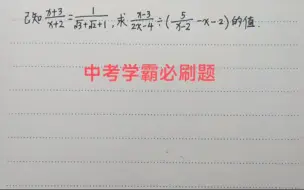 已知 (x+3)/(x+2) = 1/(√3+√2+1), 求 (x-3)/(2x-4) ÷ (5/(x-2) - x - 2) 的值.
中考学霸必刷题